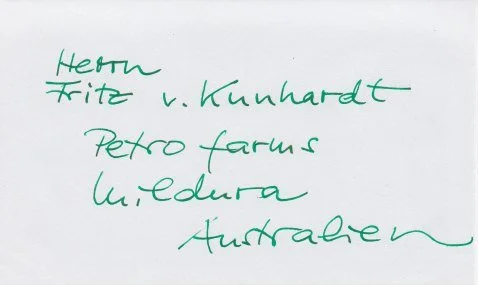 Herrn
Fritz v. Kunhardt
Petro farms
Mildura
Australien